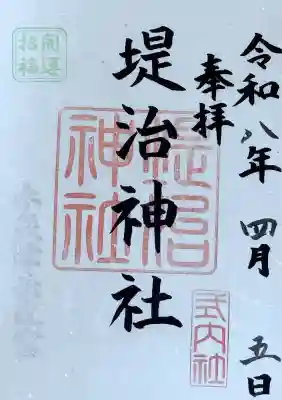 令和八年 四月 五日
奉拝
堤治神社
堤治
神社
式内社
開運
招福